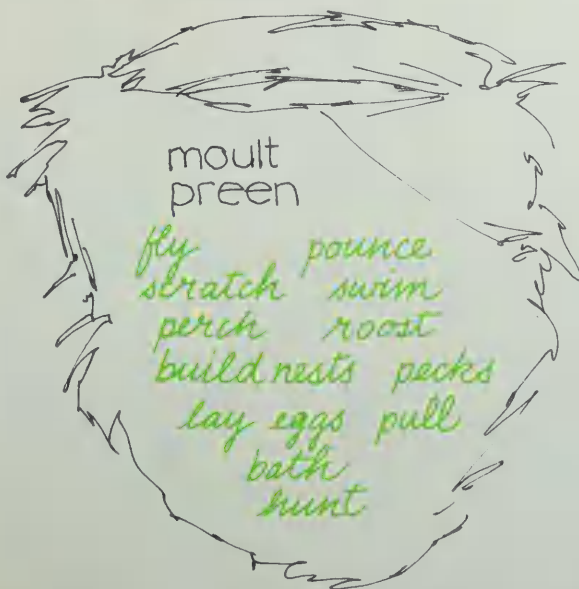 moult
preen
fly pounce
scratch swim
perch roost
build nests pecks
lay eggs pull
bath
hunt